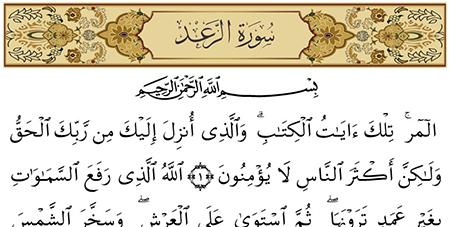 سُورَةُ الرَّعۡدِ
بِسۡمِ ٱللَّهِ ٱلرَّحۡمَٰنِ ٱلرَّحِيمِ
الٓمٓرۚ تِلۡكَ ءَايَٰتُ ٱلۡكِتَٰبِۗ وَٱلَّذِىٓ أُنزِلَ إِلَيۡكَ مِن رَّبِّكَ ٱلۡحَقُّ
وَلَٰكِنَّ أَكۡثَرَ ٱلنَّاسِ لَا يُؤۡمِنُونَ ﴿١﴾ ٱللَّهُ ٱلَّذِى رَفَعَ ٱلسَّمَٰوَٰتِ
بِغَيۡرِ عَمَدٖ تَرَوۡنَهَاۖ ثُمَّ ٱسۡتَوَىٰ عَلَى ٱلۡعَرۡشِۖ وَسَخَّرَ ٱلشَّمۡسَ